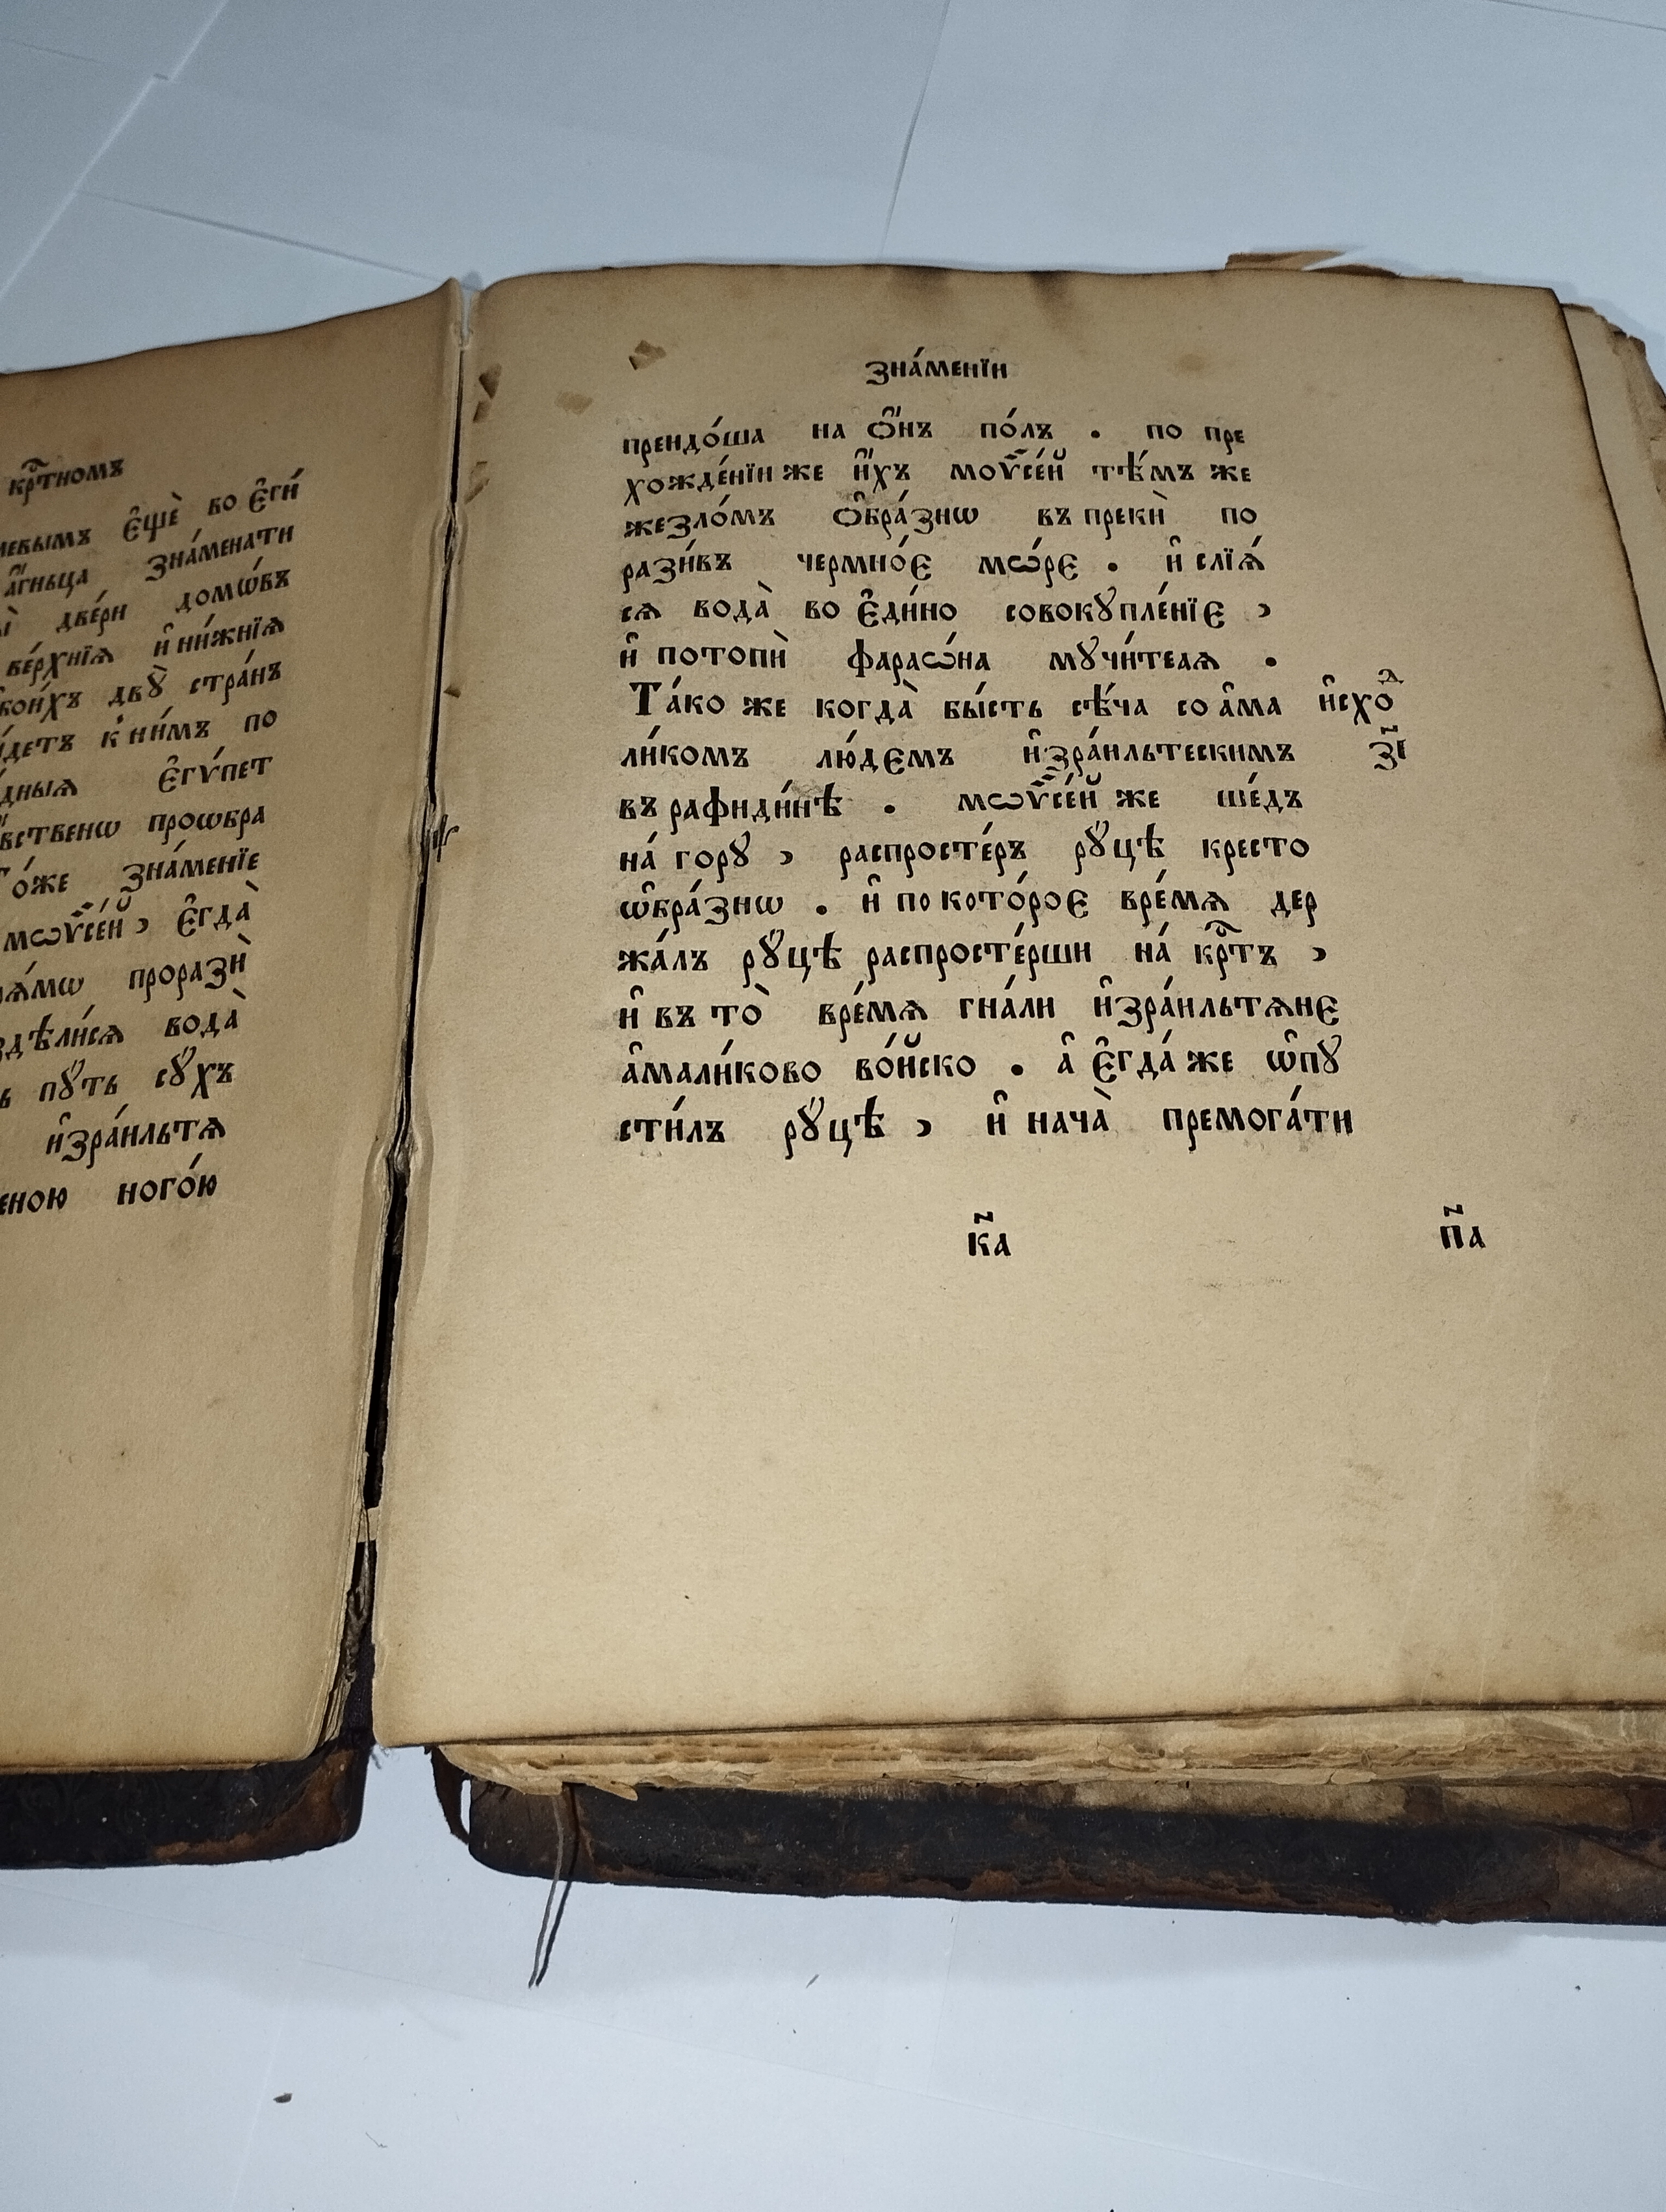 крⷭ҇тномъ
є҆щѐ во є҆ги́
а҆́гньца зна́менати
две́ри домѡ́въ
ве́рхнїѧ и҆ ни́жнїѧ
двꙋ̀ стра́нъ
к ни́мъ по
є҆гѵ́пет
проѡбра
То́же зна́менїе
мѡѷсе́й , є҆гда̀
проразѝ
вода̀
пꙋ́ть сꙋ́хъ
и҆зра́ильтѧ
ного́ю
зна́менїи
преидо́ша на ѻ҆́нъ по́лъ . по пре
хожде́нїи же и҆́хъ моѷсе́й тѣ́мъ же
жезло́мъ ѻ҆бра́знѡ въ прекѝ по
рази́въ чермно́є мѡ́рє . и҆ слїѧ́
сѧ вода̀ во є҆ди́но совокꙋпле́нїє ,
и҆ потопѝ фараѡ́на мꙋчи́телѧ .
Та́ко же когда̀ бы́сть сѣ́ча со а҆ма
ли́комъ лю́дємъ и҆зра́ильтескимъ
въ рафиди́нѣ . мѡѷсе́й же ше́дъ
на́ горꙋ , распросте́ръ рꙋ́цѣ кресто
ѡ҆бра́знѡ . и҆ по кото́роє вре́мѧ дер
жа́лъ рꙋ́цѣ распросте́рши на́ крⷭ҇тъ ,
и҆ въ то̀ вре́мѧ гна́ли и҆зра́ильтѧнє
а҆мали́ково во́йско . а҆ є҆гда́ же ѡ҆пꙋ
сти́лъ рꙋ́цѣ , и҆ нача̀ премога́ти
и҆схоⷣ
з҃і
к҃а
п҃а